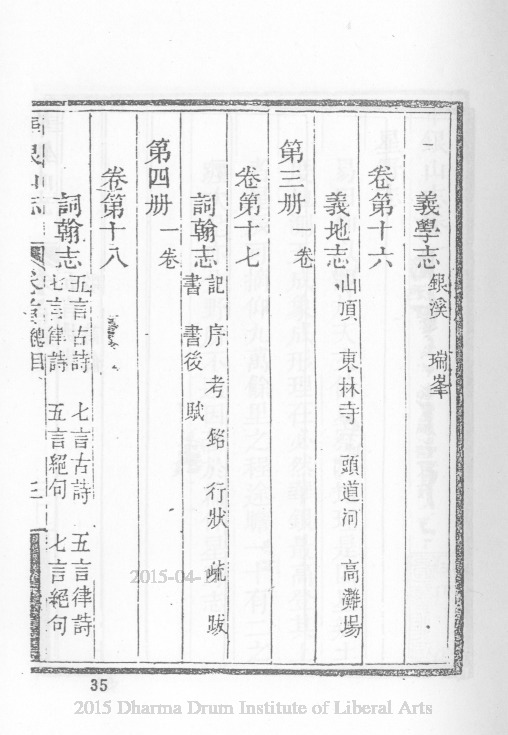 義學志 銀溪 瑞峯
卷第十六
義地志 山頂 東林寺 頭道河 高灘場
第三册 一卷
卷第十七
詞翰志 記 序 考 銘 行狀 疏 跋
書 書後 賦
第四册 一卷
卷第十八
詞翰志 五言古詩 七言古詩 五言律詩
七言律詩 五言絕句 七言絕句
山志 卷首總目 三
2015-04-
35
2015 Dharma Drum Institute of Liberal Arts